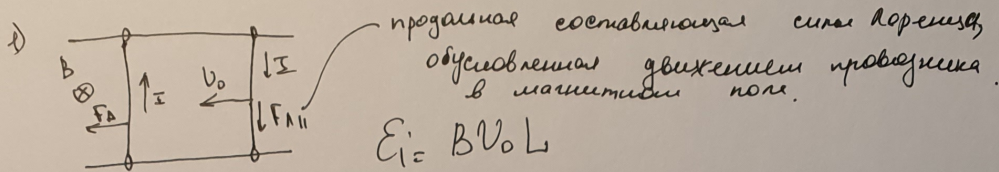 1)
продольная составляющая силы Лоренца,
обусловленная движением проводника
в магнитном поле.
B ⊗
I
I
U₀
F_A
F_Л||
Ɛᵢ = BU₀L